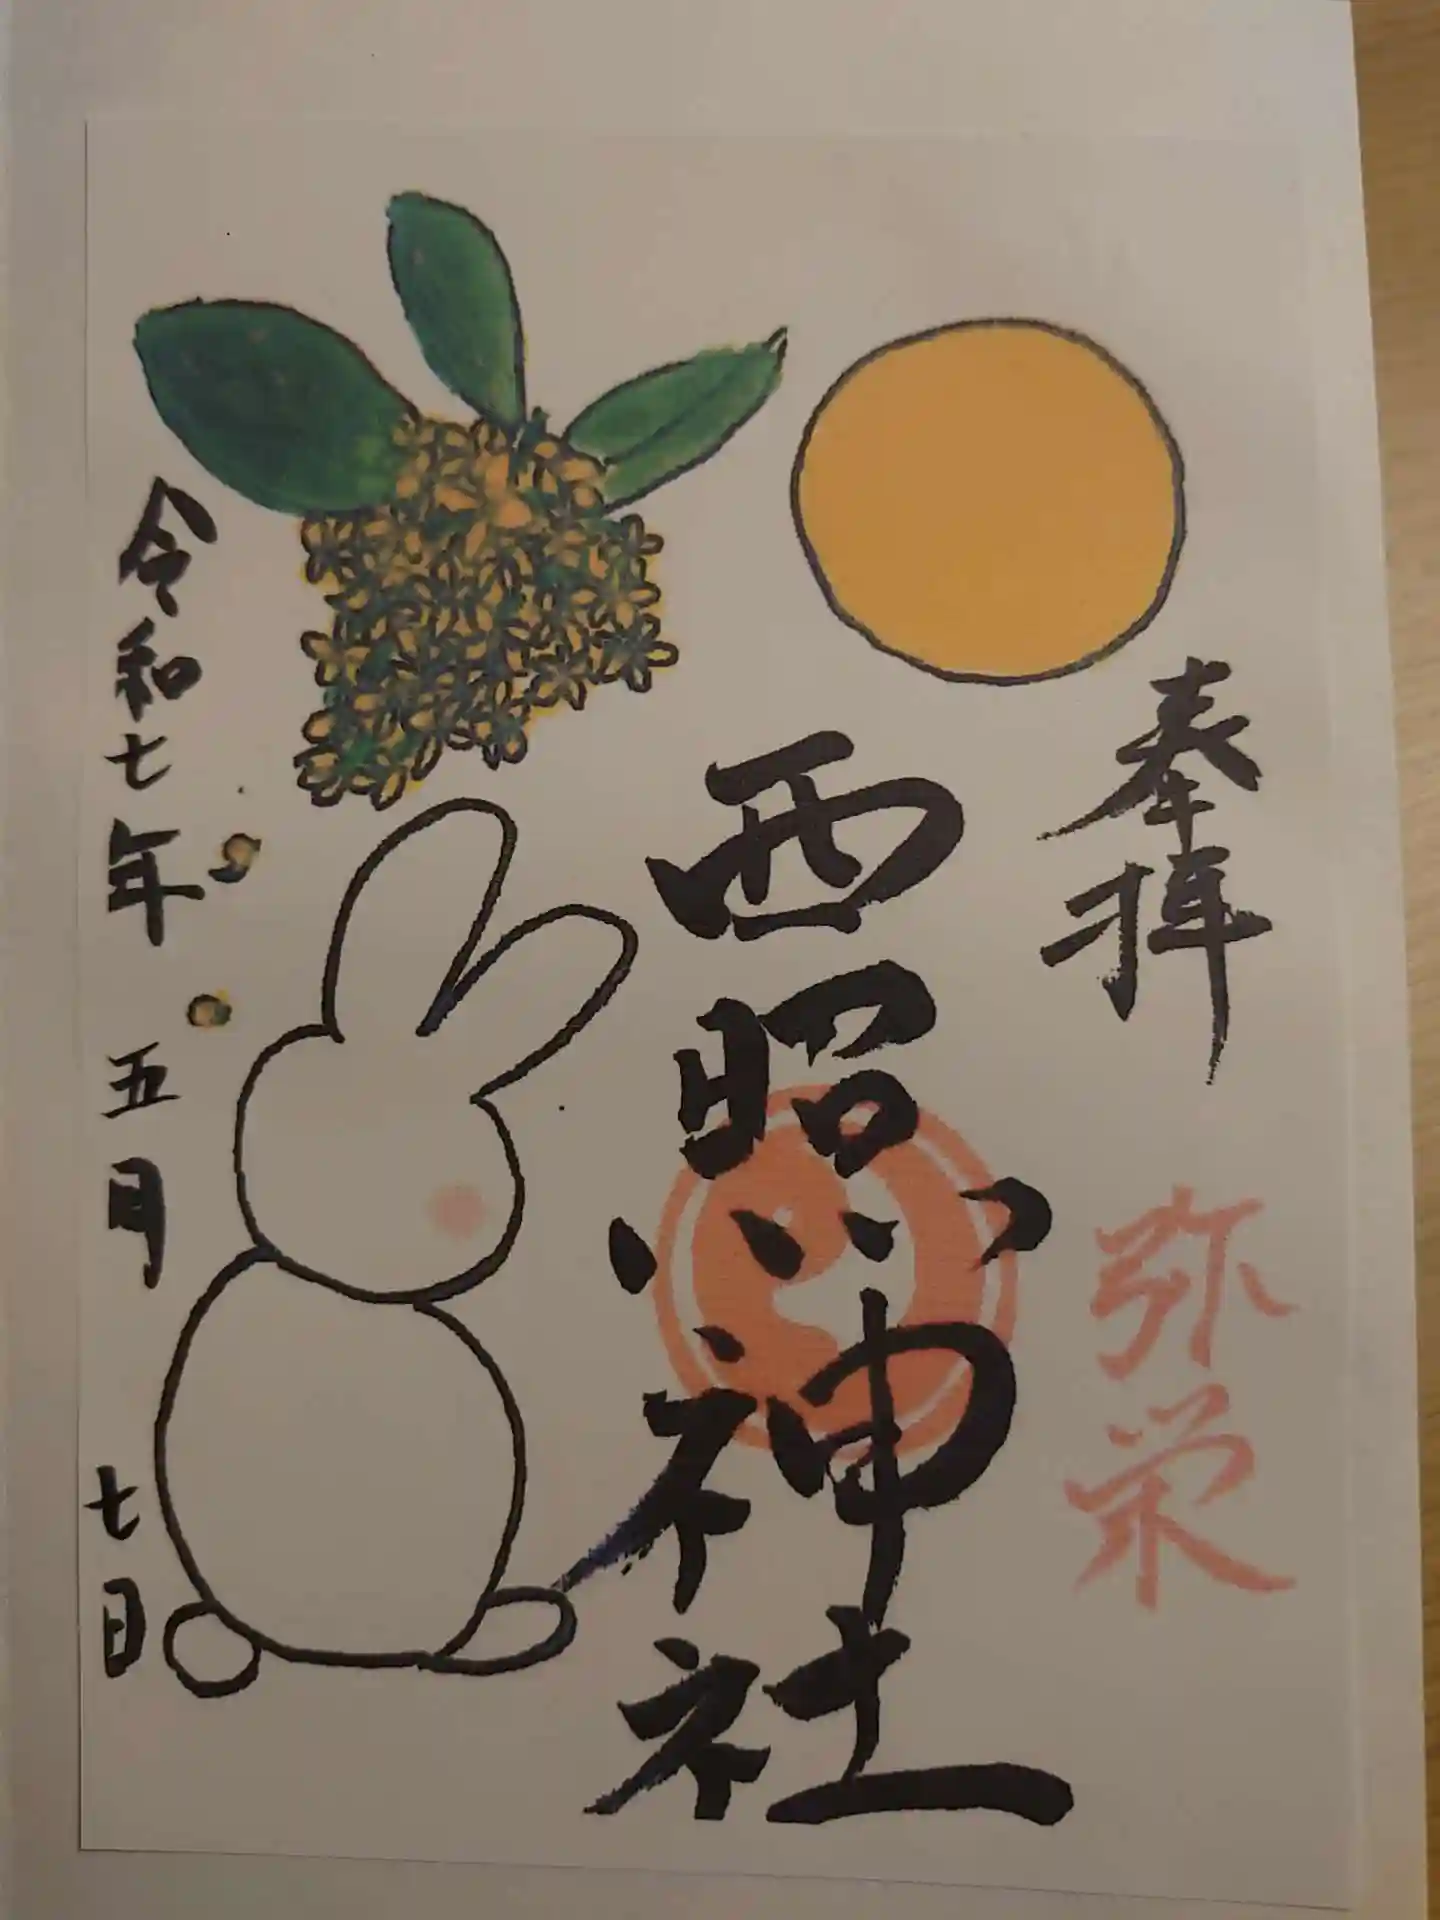 奉拝
弥栄
西照神社
令和七年五月七日